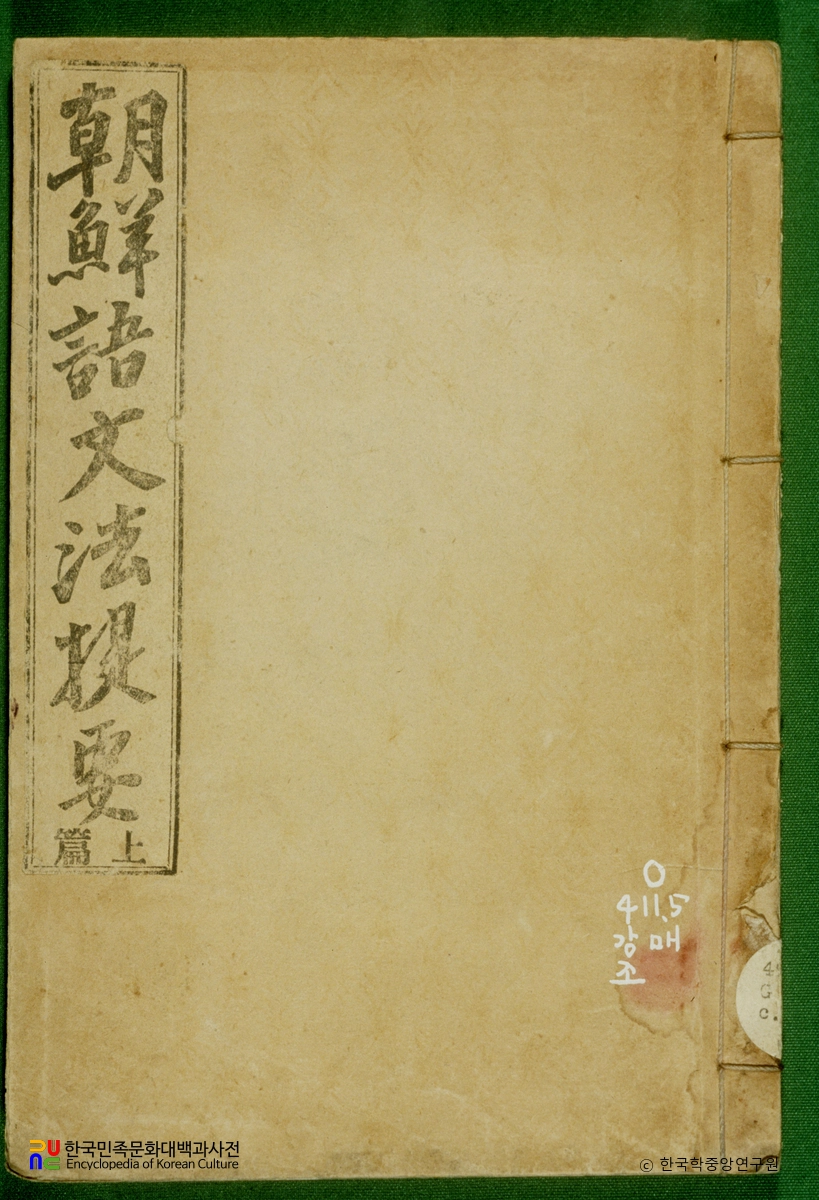 朝鮮語文法提要
上篇
O
411.5
강매
조
4
G
C.
한국민족문화대백과사전
Encyclopedia of Korean Culture
© 한국학중앙연구원